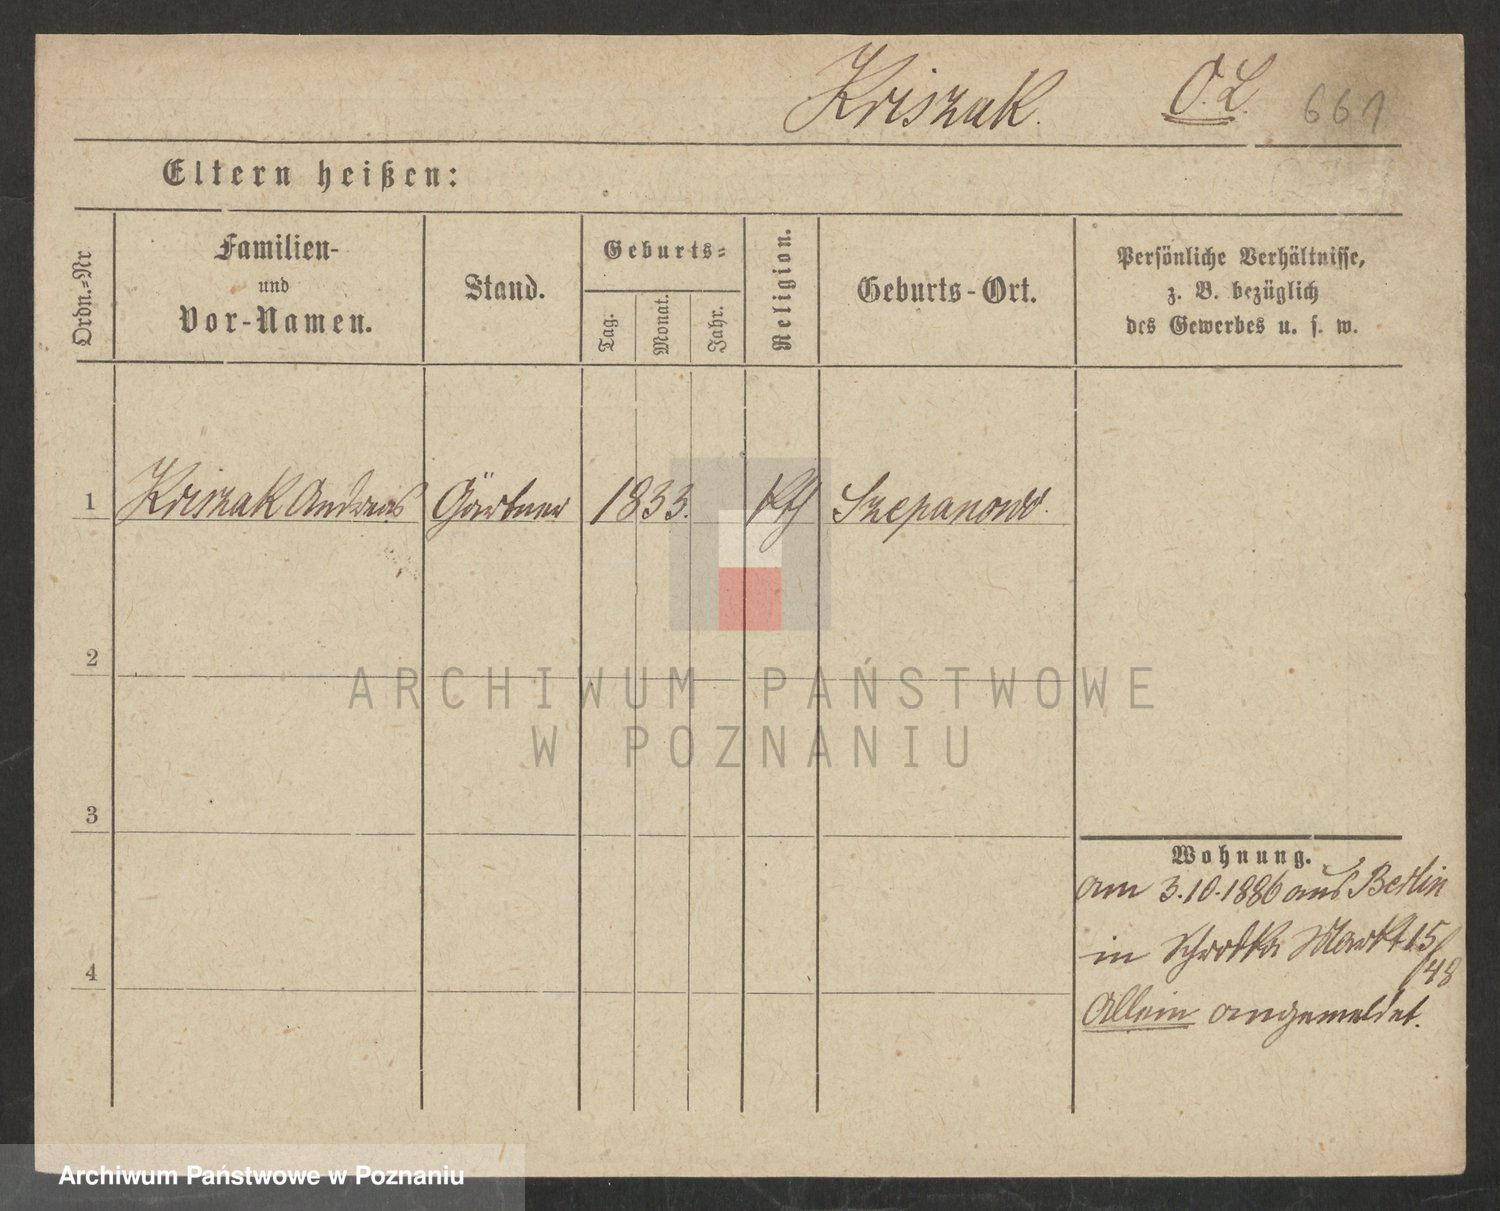 Kriszak. O. L. 661
Eltern heißen:
Ordn.-Nr
Familien-
und
Vor-Namen.
Stand.
Geburts-
Tag.
Monat.
Jahr.
Religion.
Geburts-Ort.
Persönliche Verhältnisse,
z. B. bezüglich
des Gewerbes u. s. w.
1 Kriszak Andreas Gärtner 1833. kth Szepanowo.
2
3
4
Wohnung.
am 3.10.1886 aus Berlin
in Schrodka Markt 15/
48
Allein angemeldet.
ARCHIWUM PAŃSTWOWE
W POZNANIU
Archiwum Państwowe w Poznaniu